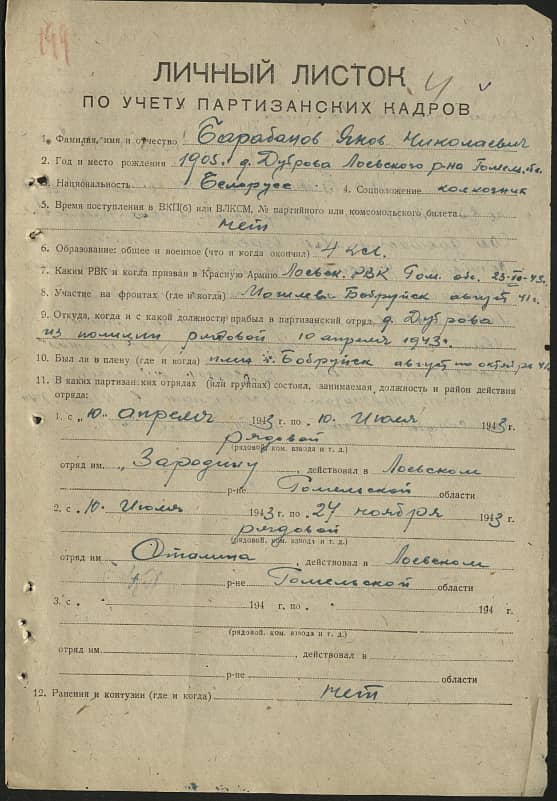 199
ЛИЧНЫЙ ЛИСТОК
ПО УЧЕТУ ПАРТИЗАНСКИХ КАДРОВ
1. Фамилия, имя и отчество Барабанов Яков Николаевич
2. Год и место рождения 1905. д. Дуброва Лоевского р-на Гомел. обл.
3. Национальность Белорусс 4. Соцположение колхозник
5. Время поступления в ВКП(б) или ВЛКСМ, № партийного или комсомольского билета
нет
6. Образование: общее и военное (что и когда окончил) 4 кл.
7. Каким РВК и когда призван в Красную Армию Лоевск. РВК Гом. обл.
8. Участие на фронтах (где и когда) Бобруйск август 41 г.
9. Откуда, когда и с какой должности прибыл в партизанский отряд д. Дуброва
из полиции рядовой 10 апреля 1943 г.
10. Был ли в плену (где и когда) плен г. Бобруйск август по октябрь 41
11. В каких партизанских отрядах (или группах) состоял, занимаемая должность и район действия
отряда:
1. с „10. апреля 1943 г. по 10. Июля 1943 г.
рядовой
(рядовой, ком. взвода и т. д.)
отряд им. , действовал в Лоевском
р-не Гомельской области
2. с 10. Июля 1943 г. по 27 ноября 1943 г.
рядовой
(рядовой, ком. взвода и т. д.)
отряд им Сталина, действовал в Лоевском
р-не Гомельской области
3. с 194 г. по 194 г.
(рядовой, ком. взвода и т. д.)
отряд им. , действовал в
р-не области
12. Ранения и контузии (где и когда) нет